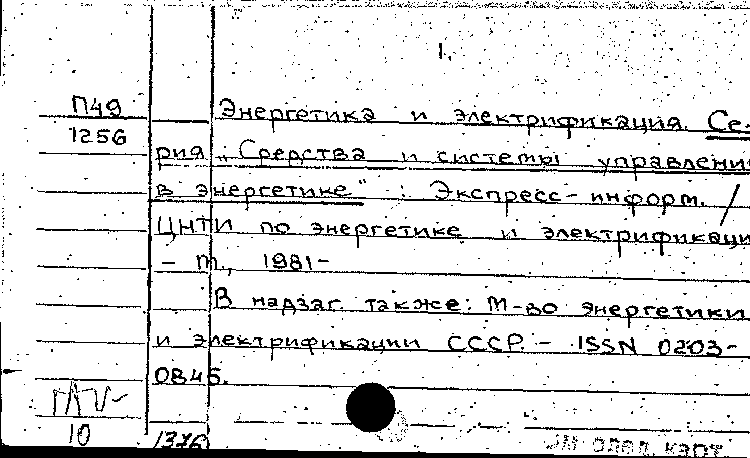 1.
П49 Энергетика и электрификация. Се-
1256
рия „Средства и системы управлени
в энергетике" : Экспресс-информ. /
ЦНТИ по энергетике и электрификаци
– М., 1981–
В надзаг. также: М-во энергетики
и электрификации СССР. – ISSN 0203-
0845.
10 1376